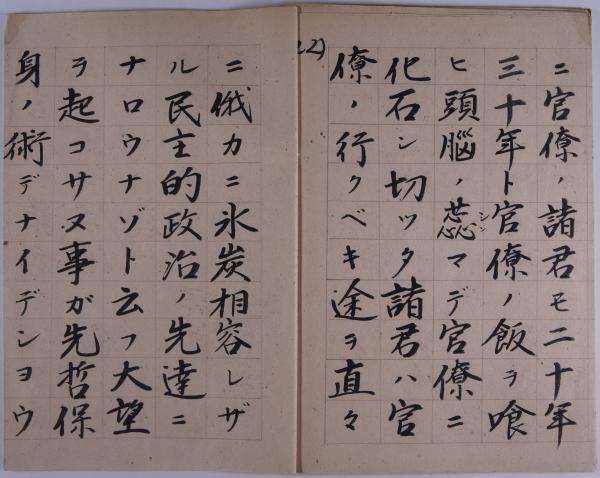 ニ官僚ノ諸君モ二十年
三十年ト官僚ノ飯ヲ喰
ヒ頭脳ノ蕊シンマデ官僚ニ
化石シ切ツタ諸君ハ官
僚ノ行クベキ途ヲ直々
22)
ニ俄カニ氷炭相容レザ
ル民主的政治ノ先達ニ
ナロウナゾト云フ大望
ヲ起コサヌ事が先哲保
身ノ術デナイデシヨウ